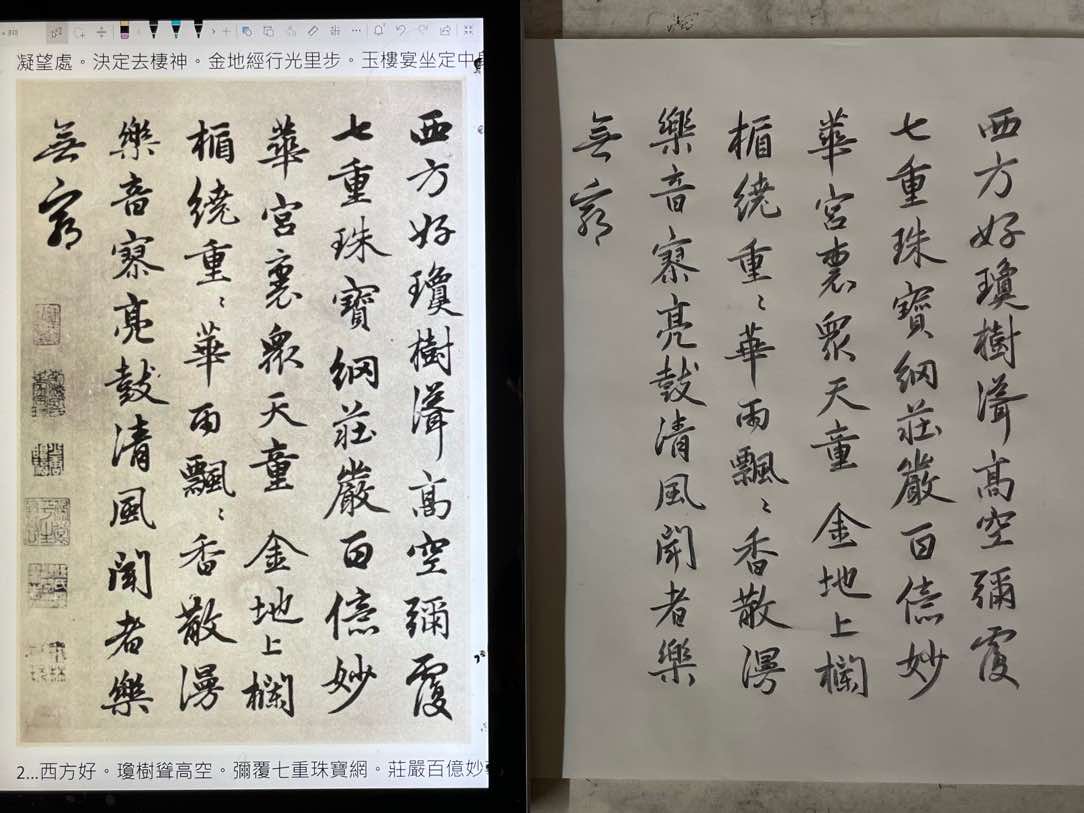 凝望處。決定去棲神。金地經行光里步。玉樓宴坐定中
西方好瓊樹聳高空彌覆
七重珠寶網莊嚴百億妙
華宮裏眾天童金地上欄
楯繞重〻華雨飄〻香散漫
樂音寥亮鼓清風聞者樂
無窮
2...西方好。瓊樹聳高空。彌覆七重珠寶網。莊嚴百億妙
西方好瓊樹聳高空彌覆
七重珠寶網莊嚴百億妙
華宮裏眾天童金地上欄
楯繞重〻華雨飄〻香散漫
樂音寥亮鼓清風聞者樂
無窮